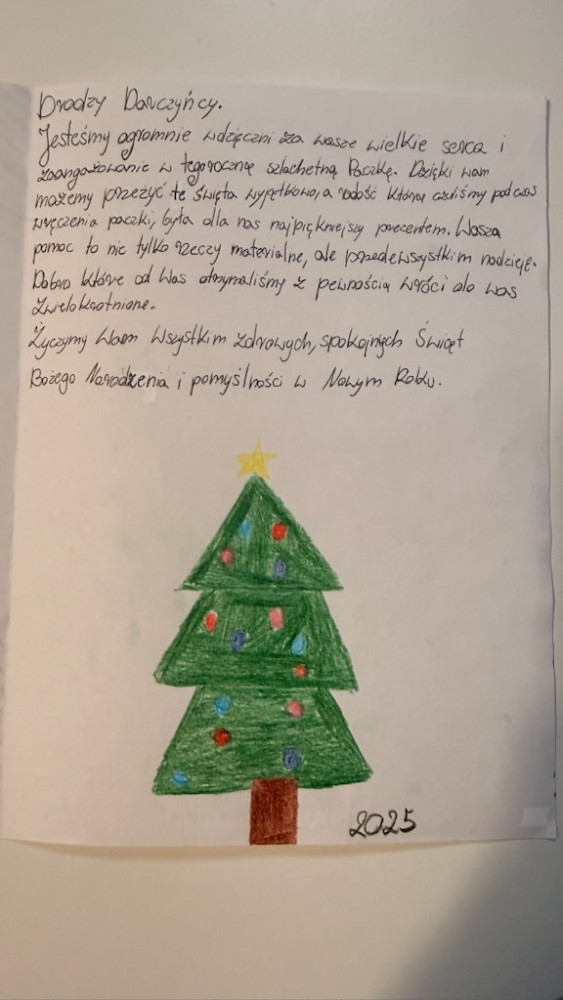 Drodzy Darczyńcy.
Jesteśmy ogromnie wdzięczni za wasze wielkie serca i
zaangażowanie w tegoroczną szlachetną Paczkę. Dzięki wam
możemy przeżyć te święta wyjątkowo, a radość którą czuliśmy podczas
wręczenia paczki, była dla nas najpiękniejszy prezentem. Wasza
pomoc to nie tylko rzeczy materialne, ale przedewszystkim nadzieję.
Dobro które od Was otrzymaliśmy z pewnością wróci do was
zwielokrotnione.
Życzymy Wam Wszystkim zdrowych, spokojnych Świąt
Bożego Narodzenia i pomyślności w Nowym Roku.
2025